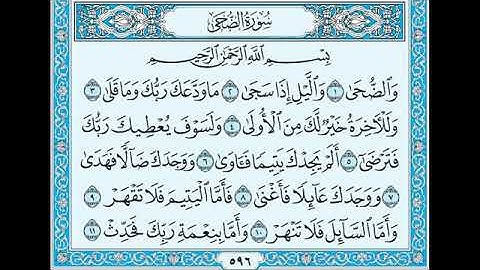 سُورَةُ الضُّحَىٰ
بِسْمِ اللَّهِ الرَّحْمَٰنِ الرَّحِيمِ
وَالضُّحَىٰ ١ وَاللَّيْلِ إِذَا سَجَىٰ ٢ مَا وَدَّعَكَ رَبُّكَ وَمَا قَلَىٰ ٣
وَلَلْآخِرَةُ خَيْرٌ لَّكَ مِنَ الْأُولَىٰ ٤ وَلَسَوْفَ يُعْطِيكَ رَبُّكَ
فَتَرْضَىٰ ٥ أَلَمْ يَجِدْكَ يَتِيمًا فَآوَىٰ ٦ وَوَجَدَكَ ضَالًّا فَهَدَىٰ
٧ وَوَجَدَكَ عَائِلًا فَأَغْنَىٰ ٨ فَأَمَّا الْيَتِيمَ فَلَا تَقْهَرْ ٩
وَأَمَّا السَّائِلَ فَلَا تَنْهَرْ ١٠ وَأَمَّا بِنِعْمَةِ رَبِّكَ فَحَدِّثْ ١١
٥٩٦